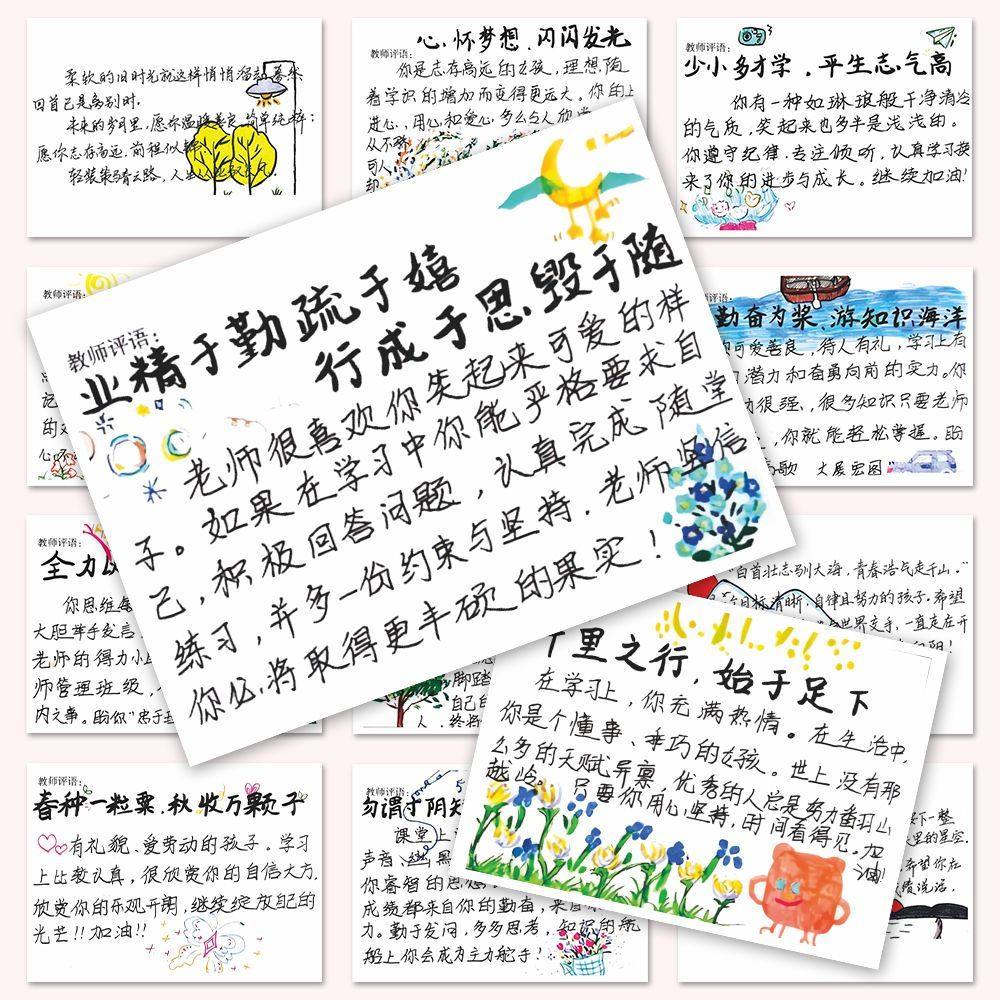 柔软的旧时光就这样悄悄溜走
回首已是离别时.
未来的岁月里,愿你温暖善良,简单纯粹;
愿你志存高远,前程似
轻装策马青云路,人生
教师评语:
心怀梦想.闪闪发光
你是志存高远的女孩,理想随
着学识的增加而变得更远大。你的上
进心、用心和爱心,多么与人欣
从不
可人
教师评语:
少小多才学.平生志气高
你有一种如琳琅般干净清冷
的气质,笑起来也多半是浅浅的。
你遵守纪律,专注倾听,认真学习换
来了你的进步与成长。继续加油!
教师评语:
教师评语:
业精于勤疏于嬉
行成于思毁于随
老师很喜欢你笑起来可爱的样
子。如果在学习中你能严格要求自
己,积极回答问题,认真完成随堂
练习,并多一份约束与坚持.老师坚信
你必将取得更丰硕的果实!
师评语:
勤奋为桨.游知识海洋
可爱善良,待人有礼,学习上有
潜力和奋勇向前的实力。你
力很强、很多知识只要老师
,你就能轻松掌握。盼
高歌 大展宏图
教师评语:
全力以
你思维每
大胆举手发言
老师的得力小
师管理班级,
内之事。盼你"忠于
脚踏
自己
人,终将
"白首壮志驯大海,青春浩气走千山。"
目标清晰,自律且努力的孩子.希望
与世界交手,一直走在开
千里之行,始于足下
在学习上,你充满热情。在生活中
你是个懂事、乖巧的女孩。世上没有那
么多的天赋异禀,优秀的人总是努力翻山
越岭。只要你用心坚持,时间看得见。加
油
教师评语:
春种一粒粟.秋收万颗子
有礼貌、爱劳动的孩子。学习
上比较认真,很欣赏你的自信大方,
欣赏你的乐观开朗,继续绽放自己的
光芒!!加油!!
教师评语:
勿谓寸阴短
课堂上
声音、
你睿智的思想
成绩都来自你的勤奋,来自你
力。勤于发问,多多思考,知识的航
船上你会成为主力舵手!
下一整
里的星空.
希望你在